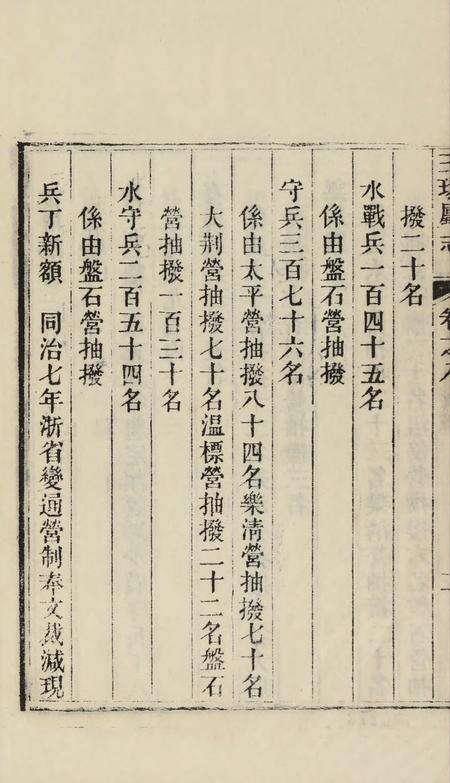 撥二十名
水戰兵一百四十五名
係由盤石營抽撥
守兵三百七十六名
係由太平營抽撥八十四名樂清營抽撥七十名
大荆營抽撥七十名溫標營抽撥二十二名盤石
營抽撥一百三十名
水守兵二百五十四名
係由盤石營抽撥
兵丁新額　同治七年浙省變通營制奉文裁減現